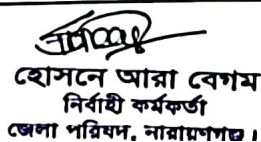 হোসনে আরা বেগম
নির্বাহী কর্মকর্তা
জেলা পরিষদ, নারায়ণগঞ্জ।